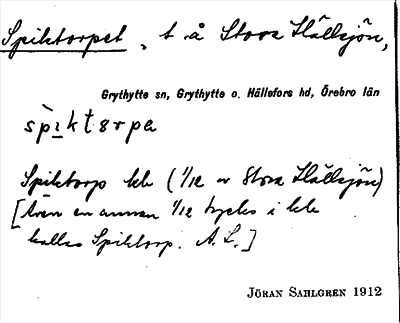 Spiktorpet, t. å Stora Hällsjön,
Grythytte sn, Grythytte o. Hällefors hd, Örebro län
spìktɘrpa
Spiktorp kb (1/12 av Stora Hällsjön)
[Även en annan 1/12 tycks i kb
kallas Spiktorp. A. L.]
JÖRAN SAHLGREN 1912